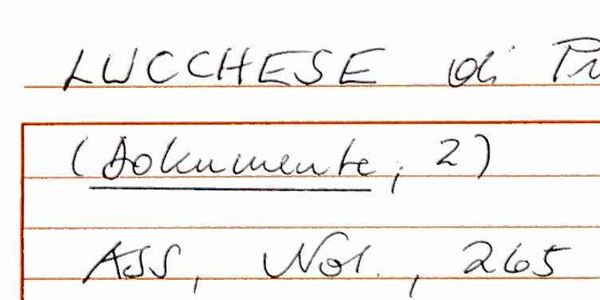 LUCCHESE di
(Dokumente; 2)
ASS, Not., 265